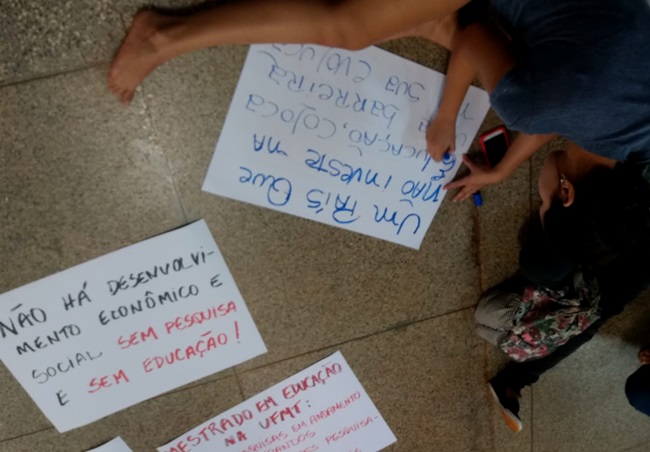 Um País Que
não investe na
Educação, coloca
barreira
sua evolução
NÃO HÁ DESENVOLVI-
MENTO ECONÔMICO E
SOCIAL SEM PESQUISA
E SEM EDUCAÇÃO!
MESTRADO EM EDUCAÇÃO
NA UFMT:
PESQUISAS EM ANDAMENTO
PESQUISA-